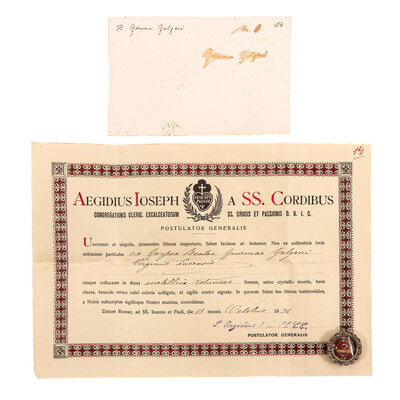 S. Gemma Galgani
n. 0
14
Gemma Galgani
14
AEGIDIUS IOSEPH A SS. CORDIBUS
CONGREGATIONIS CLERIC. EXCALCEATORUM SS. CRUCIS ET PASSIONIS D. N. I. C.
POSTULATOR GENERALIS
UNIVERSIS et singulis, praesentes litteras inspecturis, fidem facimus ac testamur, Nos ex authenticis locis
extraxisse particulas ex corpore Beatae Gemmae Galgani
Virginis Lucensis
easque collocasse in theca metallica rotundae formae, unico crystallo munita, bene
clausa, funiculo serico rubri coloris colligata, et sigillo nostro signata. In quorum fidem has litteras testimoniales,
a Nobis subscriptas sigilloque Nostro munitas, concedimus.
Datum Romae, ad SS. Ioannis et Pauli, die 15 mensis Octobris 1934
P. Aegidius
POSTULATOR GENERALIS